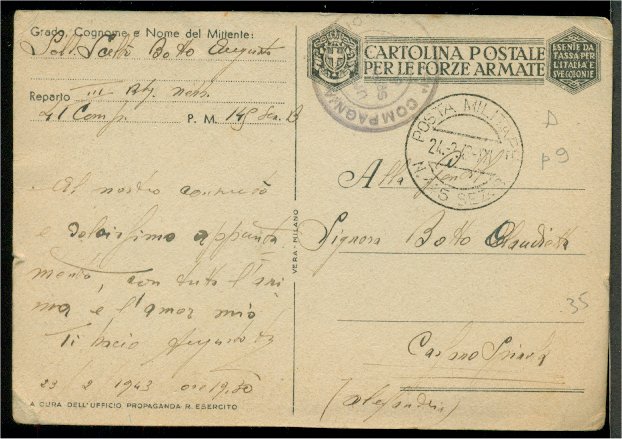 Grado, Cognome e Nome del Mittente:
Botto Augusto
Reparto III
P. M. 145 Sez. B
Al nostro consueto
e dolcissimo appunta
mento, con tutta l'ani
ma e l'amor mio
Ti bacio Augusto
23 2 1943 ore 19,30
A CURA DELL'UFFICIO PROPAGANDA R. ESERCITO
VERA - MILANO
CARTOLINA POSTALE
PER LE FORZE ARMATE
ESENTE DA
TASSA PER
L'ITALIA E
SUE COLONIE
COMPAGNIA
POSTA MILITARE
24-2-43
N. 145 SEZ.
D
P9
Alla
Signora Botto Claudietta
35
(Alessandria)